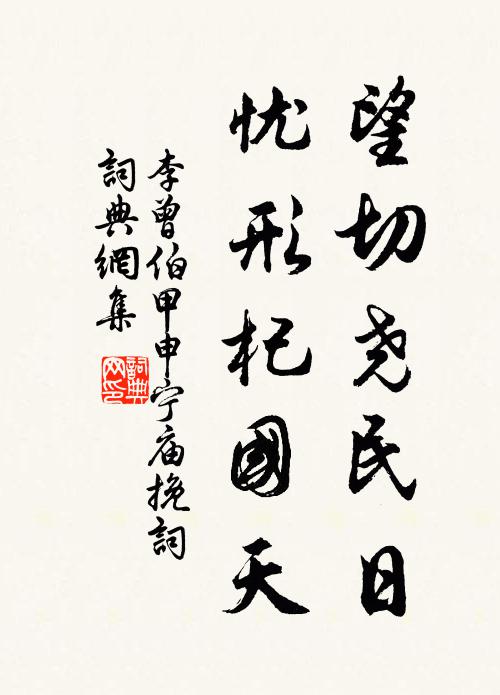 望切尧民日
忧形杞國天
李曾伯甲申宁庙挽詞
詞典網集
詞典网印